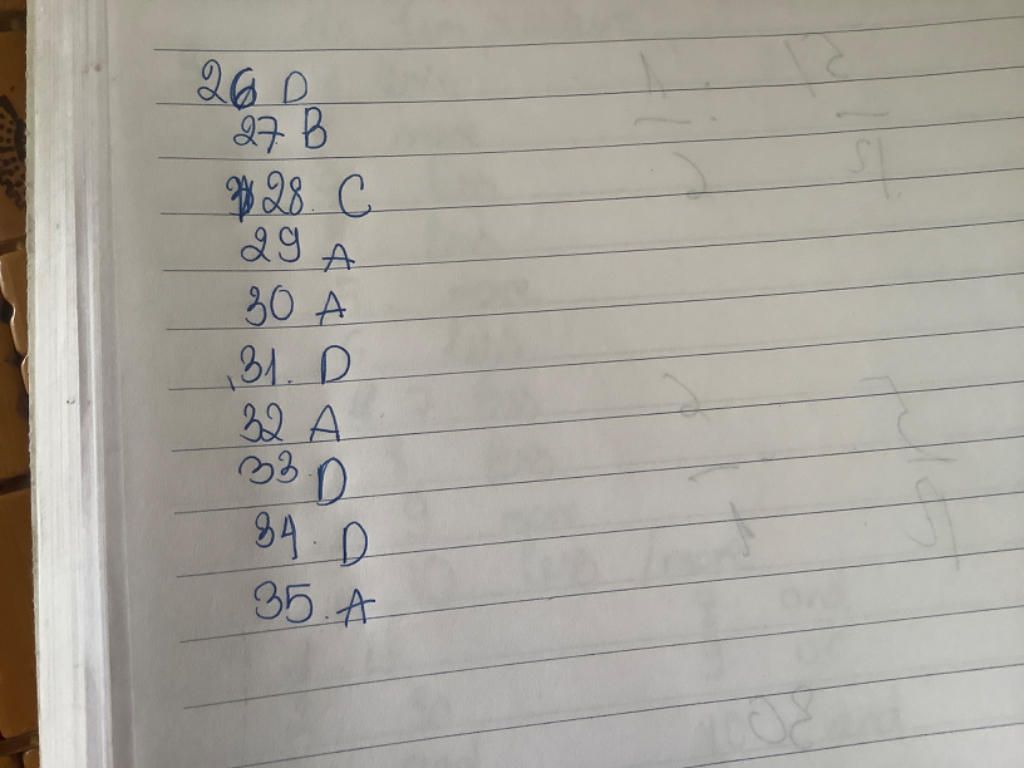 26 D
27 B
28. C
29 A
30 A
31. D
32 A
33. D
34. D
35. A